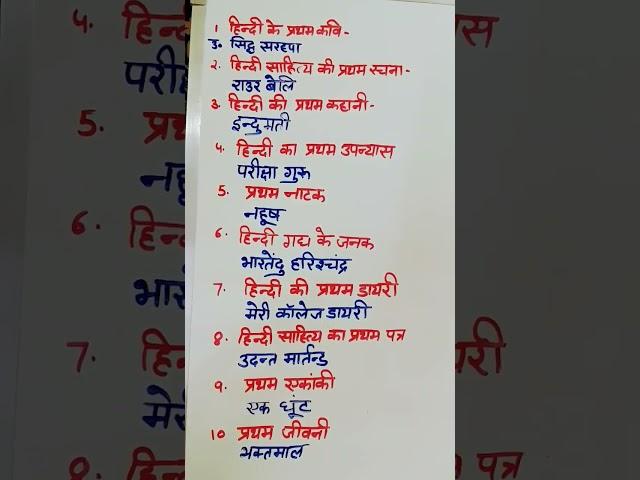 1 हिन्दी के प्रथम कवि -
उ० सिद्ध सरहपा
2. हिन्दी साहित्य की प्रथम रचना -
राउर बेलि
3. हिन्दी की प्रथम कहानी -
इन्दुमती
4. हिन्दी का प्रथम उपन्यास
परीक्षा गुरु
5. प्रथम नाटक
नहूष
6. हिन्दी गद्य के जनक
भारतेंदु हरिश्चंद्र
7. हिन्दी की प्रथम डायरी
मेरी कॉलेज डायरी
8. हिन्दी साहित्य का प्रथम पत्र
उदन्त मार्तन्ड
9. प्रथम एकांकी
एक घूंट
10 प्रथम जीवनी
भक्तमाल